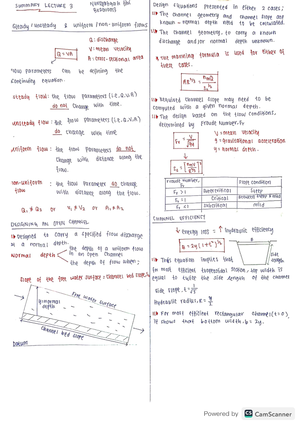 SUMMARY LECTURE 3
Steady / unsteady & uniform / non-uniform flows
Q = VA
Q : discharge
V : mean velocity
A : cross-sectional area
flow parameters can be defining the
continuity equation.
steady flow : the flow parameters (i.e. Q, V, A)
do not change with time.
unsteady flow : the flow parameters (i.e. Q, V, A)
do change with time
uniform flow : the flow parameters do not
change with distance along the
flow.
non-uniform : the flow parameters do change
with distance along the flow.
Q1 ≠ Q2 or V1 ≠ V2 or A1 ≠ A2
DESIGNING AN OPEN CHANNEL
Designed to carry a specified flow discharge
at a normal depth.
Normal depth
the depth of a uniform flow
in an open channel
the depth of flow where;
slope of the free water surface = channel bed slope
free water surface
normal
depth
channel bed slope
Datum
Design situations presented in either 2 cases;
The channel geometry and channel slope are
known - normal depth need to be calculated.
The channel geometry, to carry a known
discharge and/or normal depth unknown.
The manning formula is used for either of
these cases.
Required channel slope may need to be
computed with a given normal depth.
The design based on the flow conditions,
determined by Froude number, Fr
V = mean velocity
g = gravitational acceleration
y = normal depth.
Froude Number,
Flow condition
Supercritical
Critical
Subcritical
CHANNEL EFFICIENCY
↓ energy loss = ↑ hydraulic efficiency
This equation implies that
side
slope
Hydraulic radius, R =
For most efficient rectangular channel (t=0),
it shows that bottom width, b = 2y.
Powered by CS CamScanner